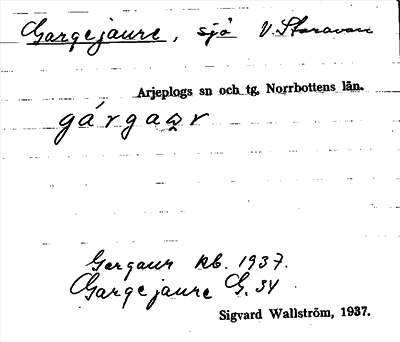 Gargejaure, sjö V. Storavan
Arjeplogs sn och tg, Norrbottens län.
Gargaur Rb. 1937.
Gargejaure G. 34
Sigvard Wallström, 1937.